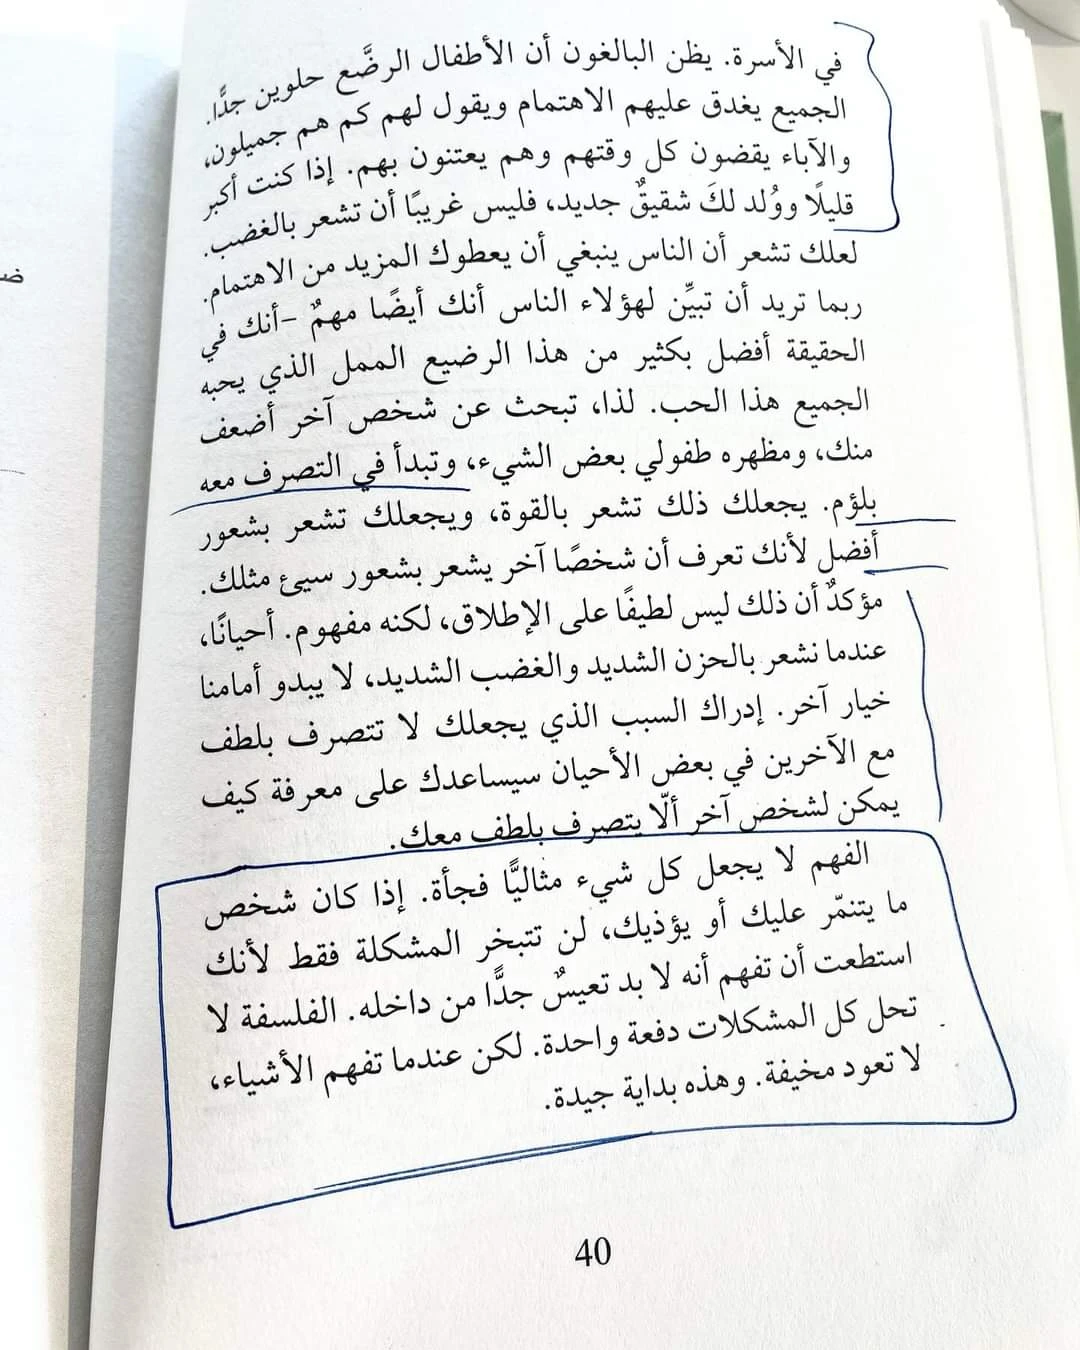 في الأسرة. يظن البالغون أن الأطفال الرضَّع حلوين جدًّا.
الجميع يغدق عليهم الاهتمام ويقول لهم كم هم جميلون،
والآباء يقضون كل وقتهم وهم يعتنون بهم. إذا كنت أكبر
قليلًا ووُلد لكَ شقيقٌ جديد، فليس غريبًا أن تشعر بالغضب.
لعلك تشعر أن الناس ينبغي أن يعطوك المزيد من الاهتمام.
ربما تريد أن تبيِّن لهؤلاء الناس أنك أيضًا مهمٌ –أنك في
الحقيقة أفضل بكثير من هذا الرضيع الممل الذي يحبه
الجميع هذا الحب. لذا، تبحث عن شخص آخر أضعف
منك، ومظهره طفولي بعض الشيء، وتبدأ في التصرف معه
بلؤم. يجعلك ذلك تشعر بالقوة، ويجعلك تشعر بشعور
أفضل لأنك تعرف أن شخصًا آخر يشعر بشعور سيئ مثلك.
مؤكدٌ أن ذلك ليس لطيفًا على الإطلاق، لكنه مفهوم. أحيانًا،
عندما نشعر بالحزن الشديد والغضب الشديد، لا يبدو أمامنا
خيار آخر. إدراك السبب الذي يجعلك لا تتصرف بلطف
مع الآخرين في بعض الأحيان سيساعدك على معرفة كيف
يمكن لشخص آخر ألّا يتصرف بلطف معك.
الفهم لا يجعل كل شيء مثاليًّا فجأة. إذا كان شخص
ما يتنمّر عليك أو يؤذيك، لن تتبخر المشكلة فقط لأنك
استطعت أن تفهم أنه لا بد تعيسٌ جدًّا من داخله. الفلسفة لا
تحل كل المشكلات دفعة واحدة. لكن عندما تفهم الأشياء،
لا تعود مخيفة. وهذه بداية جيدة.
40